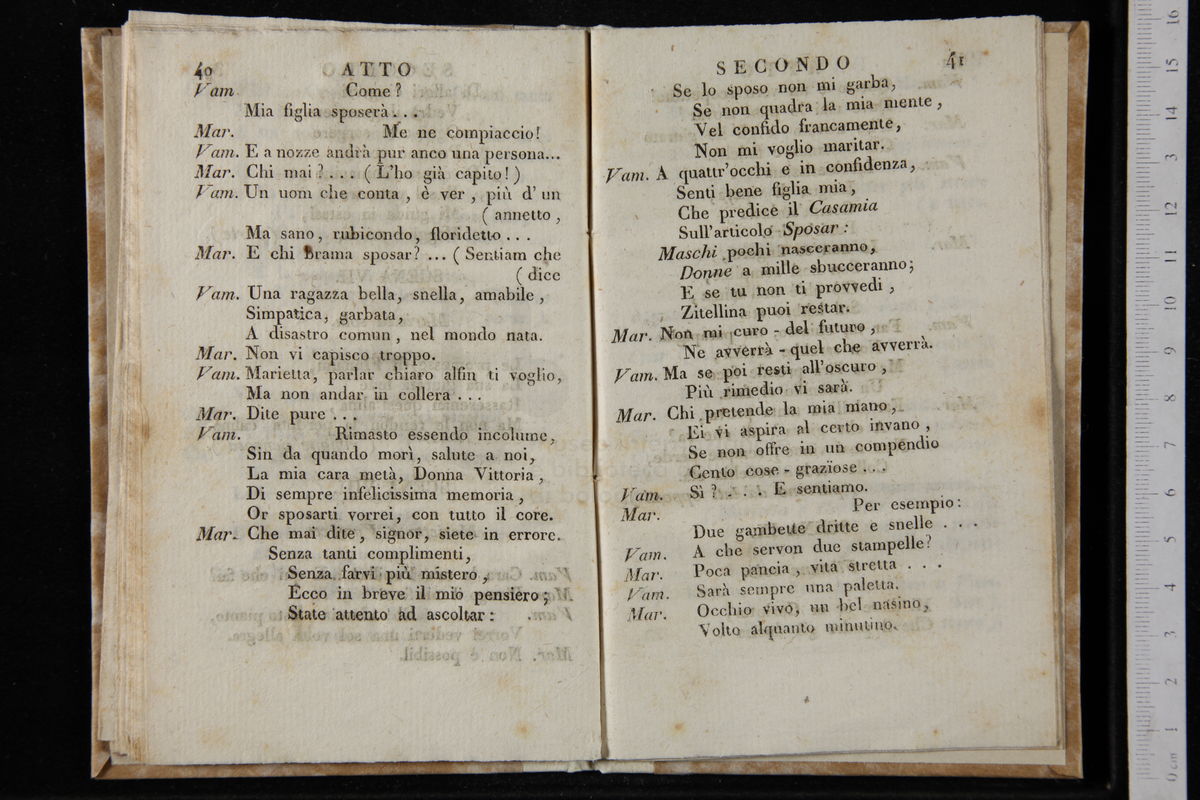 40 ATTO
Vam. Come?
Mia figlia sposerà...
Mar. Me ne compiaccio!
Vam. E a nozze andrà pur anco una persona...
Mar. Chi mai?... (L'ho già capito!)
Vam. Un uom che conta, è ver, più d'un
(annetto,
Ma sano, rubicondo, floridetto...
Mar. E chi brama sposar?... (Sentiam che
(dice
Vam. Una ragazza bella, snella, amabile,
Simpatica, garbata,
A disastro comun, nel mondo nata.
Mar. Non vi capisco troppo.
Vam. Marietta, parlar chiaro alfin ti voglio,
Ma non andar in collera...
Mar. Dite pure...
Vam. Rimasto essendo incolume,
Sin da quando morì, salute a noi,
La mia cara metà, Donna Vittoria,
Di sempre infelicissima memoria,
Or sposarti vorrei, con tutto il core.
Mar. Che mai dite, signor, siete in errore.
Senza tanti complimenti,
Senza farvi più mistero,
Ecco in breve il mio pensiero;
State attento ad ascoltar:
SECONDO 41
Se lo sposo non mi garba,
Se non quadra la mia mente,
Vel confido francamente,
Non mi voglio maritar.
Vam. A quattr'occhi e in confidenza,
Senti bene figlia mia,
Che predice il Casamia
Sull'articolo Sposar:
Maschi pochi nasceranno,
Donne a mille sbucceranno;
E se tu non ti provvedi,
Zitellina puoi restar.
Mar. Non mi curo - del futuro,
Ne avverrà - quel che avverrà.
Vam. Ma se poi resti all'oscuro,
Più rimedio vi sarà.
Mar. Chi pretende la mia mano,
Ei vi aspira al certo invano,
Se non offre in un compendio
Cento cose - graziose...
Vam. Sì?... E sentiamo.
Mar. Per esempio:
Due gambette dritte e snelle...
Vam. A che servon due stampelle?
Mar. Poca pancia, vita stretta...
Vam. Sarà sempre una paletta.
Mar. Occhio vivo, un bel nasino,
Volto alquanto minutino.